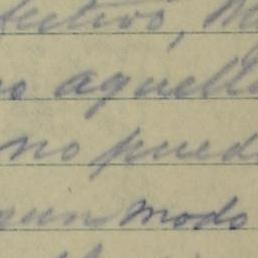 fectivo,
o aquell
no pued
gun modo